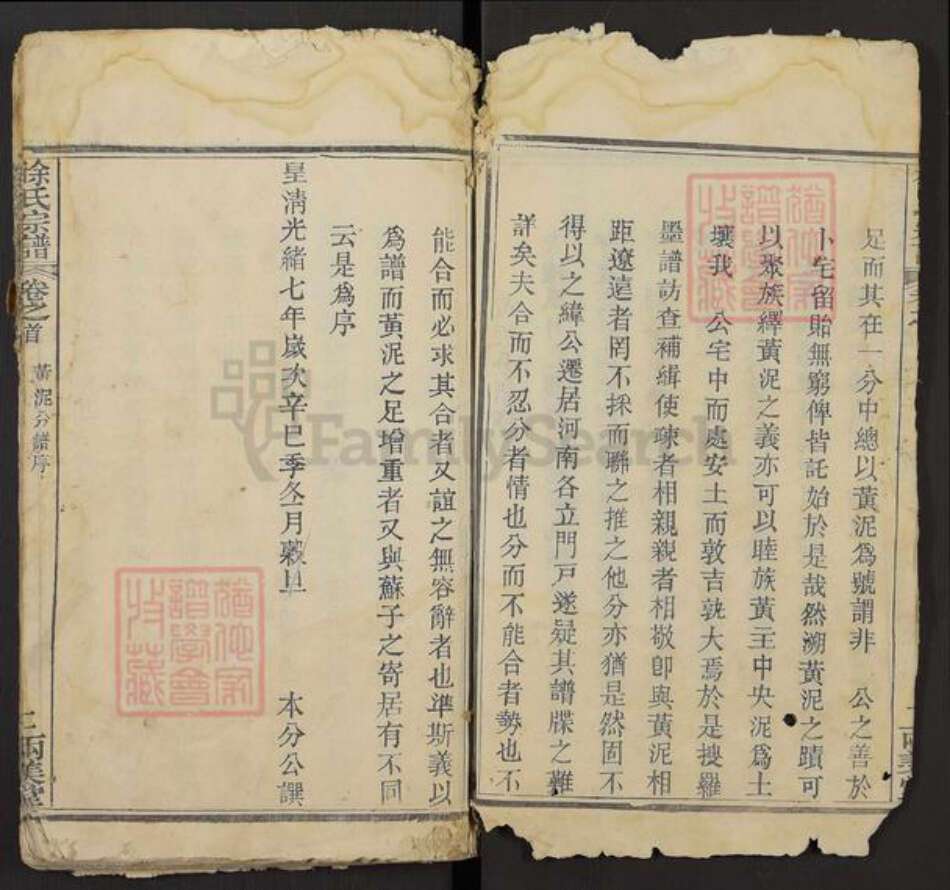 足而其在一分中總以黃泥爲號謂非　公之善於
卜宅留貽無窮俾皆託始於是哉然溯黃泥之蹟可
以聚族繹黃泥之義亦可以睦族黃王中央泥爲土
壤我　公宅中而處安土而敦吉孰大焉於是搜羅
墨譜訪查補緝使疎者相親親者相敬卽與黃泥相
距遼遠者罔不採而聯之推之他分亦猶是然固不
得以之緯公遷居河南各立門戸遂疑其譜牒之難
詳矣夫合而不忍分者情也分而不能合者勢也不
能合而必求其合者又誼之無容辭者也準斯義以
爲譜而黃泥之足增重者又與蘇子之寄居有不同
云是爲序
皇淸光緒七年歲次辛巳季冬月榖旦　本分公譔
徐氏宗譜　卷之首　黃泥分譜序　二　兩美堂
猶他家譜學會收藏
猶他家譜學會收藏
FamilySearch